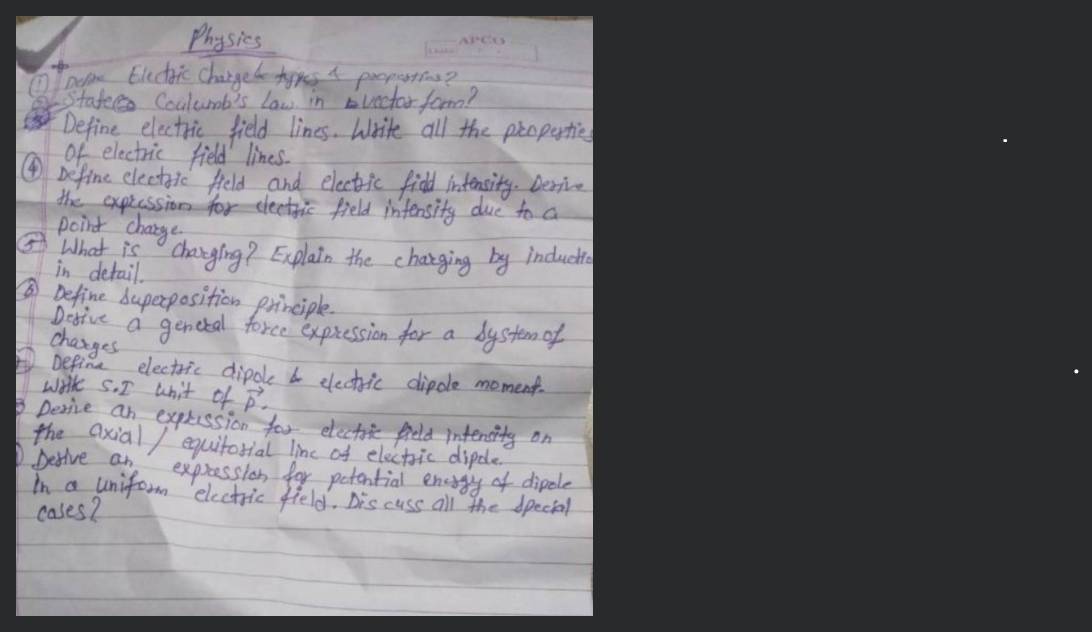 Physics
APCO
① Define Electric Charge & types & properties?
② State Coulumb's Law in vector form?
③ Define electric field lines. Write all the propertie
Of electric field lines.
④ Define electric field and electric field intensity. Derive
the expression for electric field intensity due to a
point charge.
⑤ What is charging? Explain the charging by inductio
in detail.
⑥ Define Superposition principle.
Derive a general force expression for a System of
charges
Define electric dipole & electric dipole moment.
Write S.I unit of p⃗.
Derive an expression for electric field intensity on
the axial / equitorial line of electric dipole.
Derive an expression for potential energy of dipole
in a uniform electric field. Discuss all the special
cases?